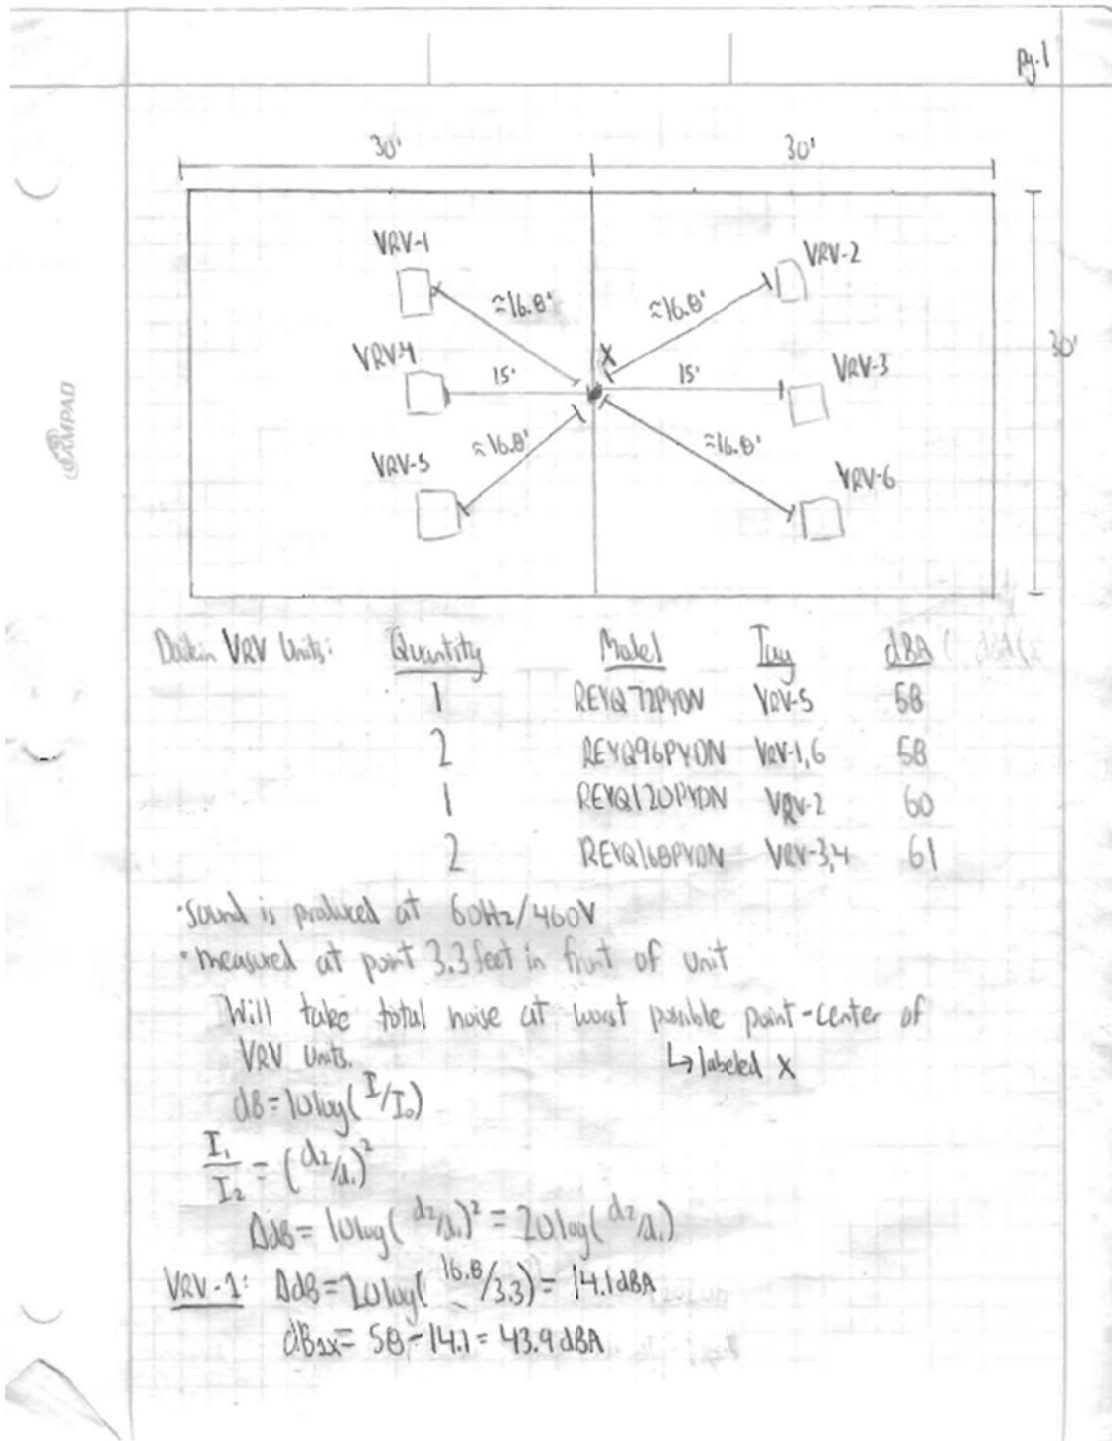 pg.1
30' 30'
VRV-1 VRV-2
≈16.8' ≈16.8'
30'
X
VRV-4 15' 15' VRV-3
≈16.8' ≈16.8'
VRV-5 VRV-6
AMPAD
Daikin VRV Units: Quantity Model Tag dBA
1 REYQ72PYDN VRV-5 58
2 REYQ96PYDN VRV-1,6 58
1 REYQ120PYDN VRV-2 60
2 REYQ168PYDN VRV-3,4 61
·sound is produced at 60Hz/460V
·measured at point 3.3 feet in front of unit
Will take total noise at worst possible point-center of
VRV units. ↳ labeled X
dB=10log(I/I₀)
I₁/I₂ = (d₂/d₁)²
ΔdB= 10log(d₂/d₁)² = 20log(d₂/d₁)
VRV-1: ΔdB=20log(16.8/3.3)= 14.1dBA
dB1x= 58-14.1= 43.9dBA